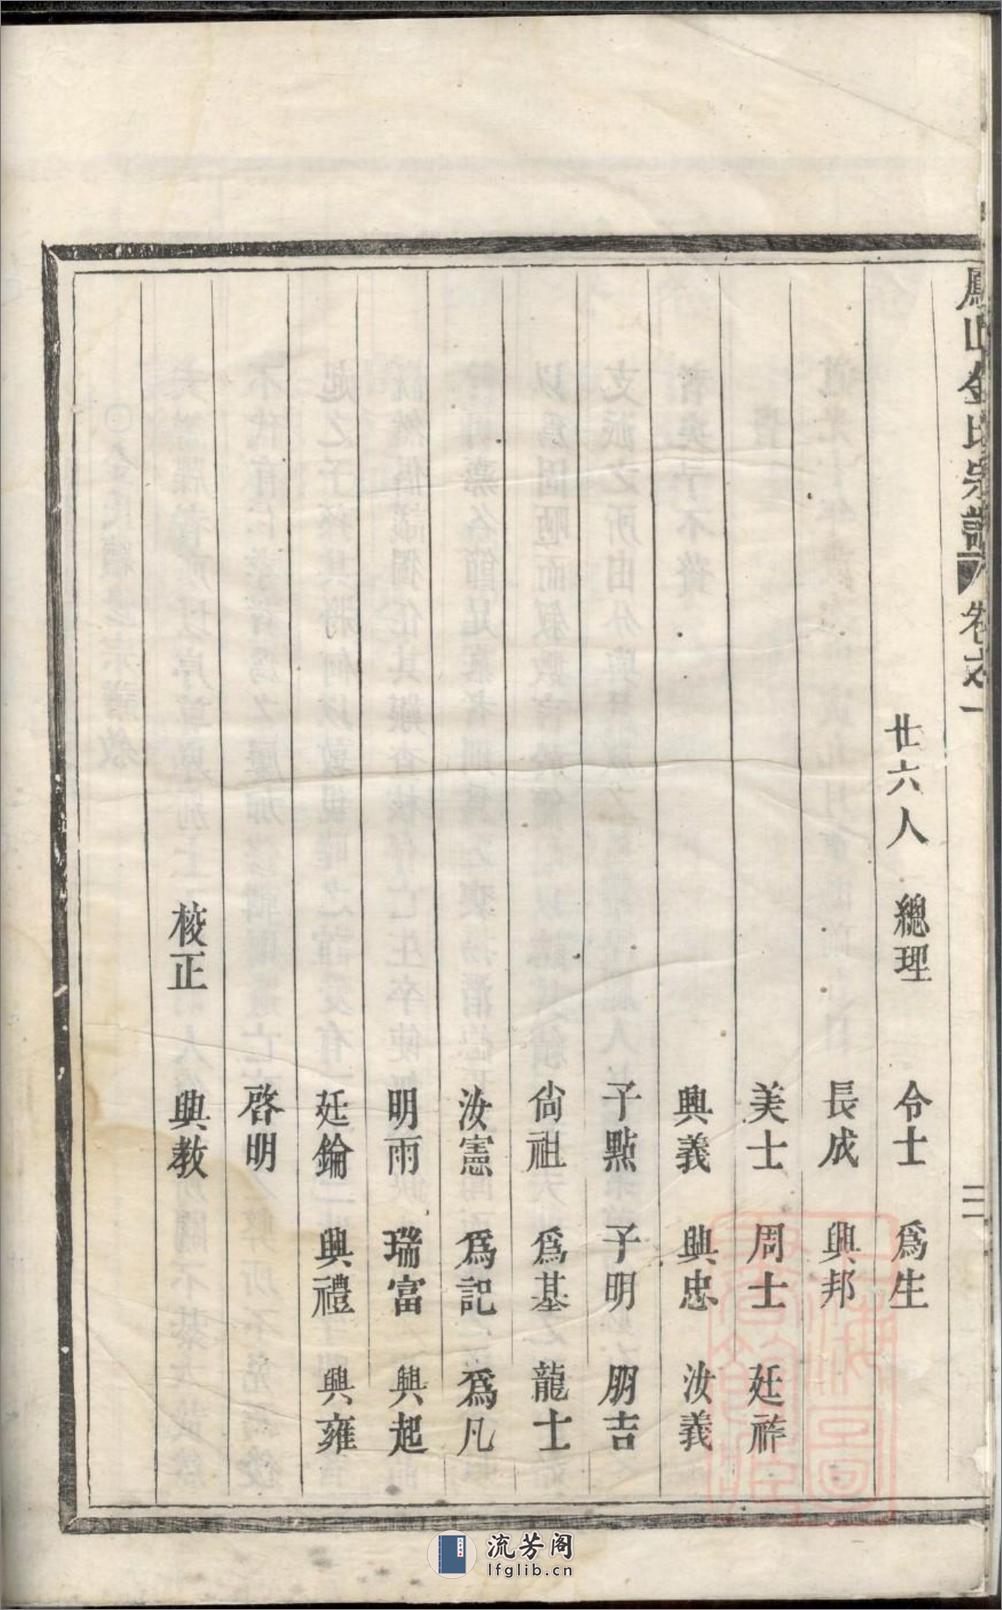 鳳山金氏宗譜 卷之一 二
廿六人 總理 令士 爲生
長成 興邦
美士 周士 廷祚
興義 興忠 汝義
子點 子明 朋吉
尙祖 爲基 龍士
汝憲 爲記 爲凡
明雨 瑞富 興起
廷鑰 興禮 興雍
啓明
校正 興教
流芳阁
lfglib.cn